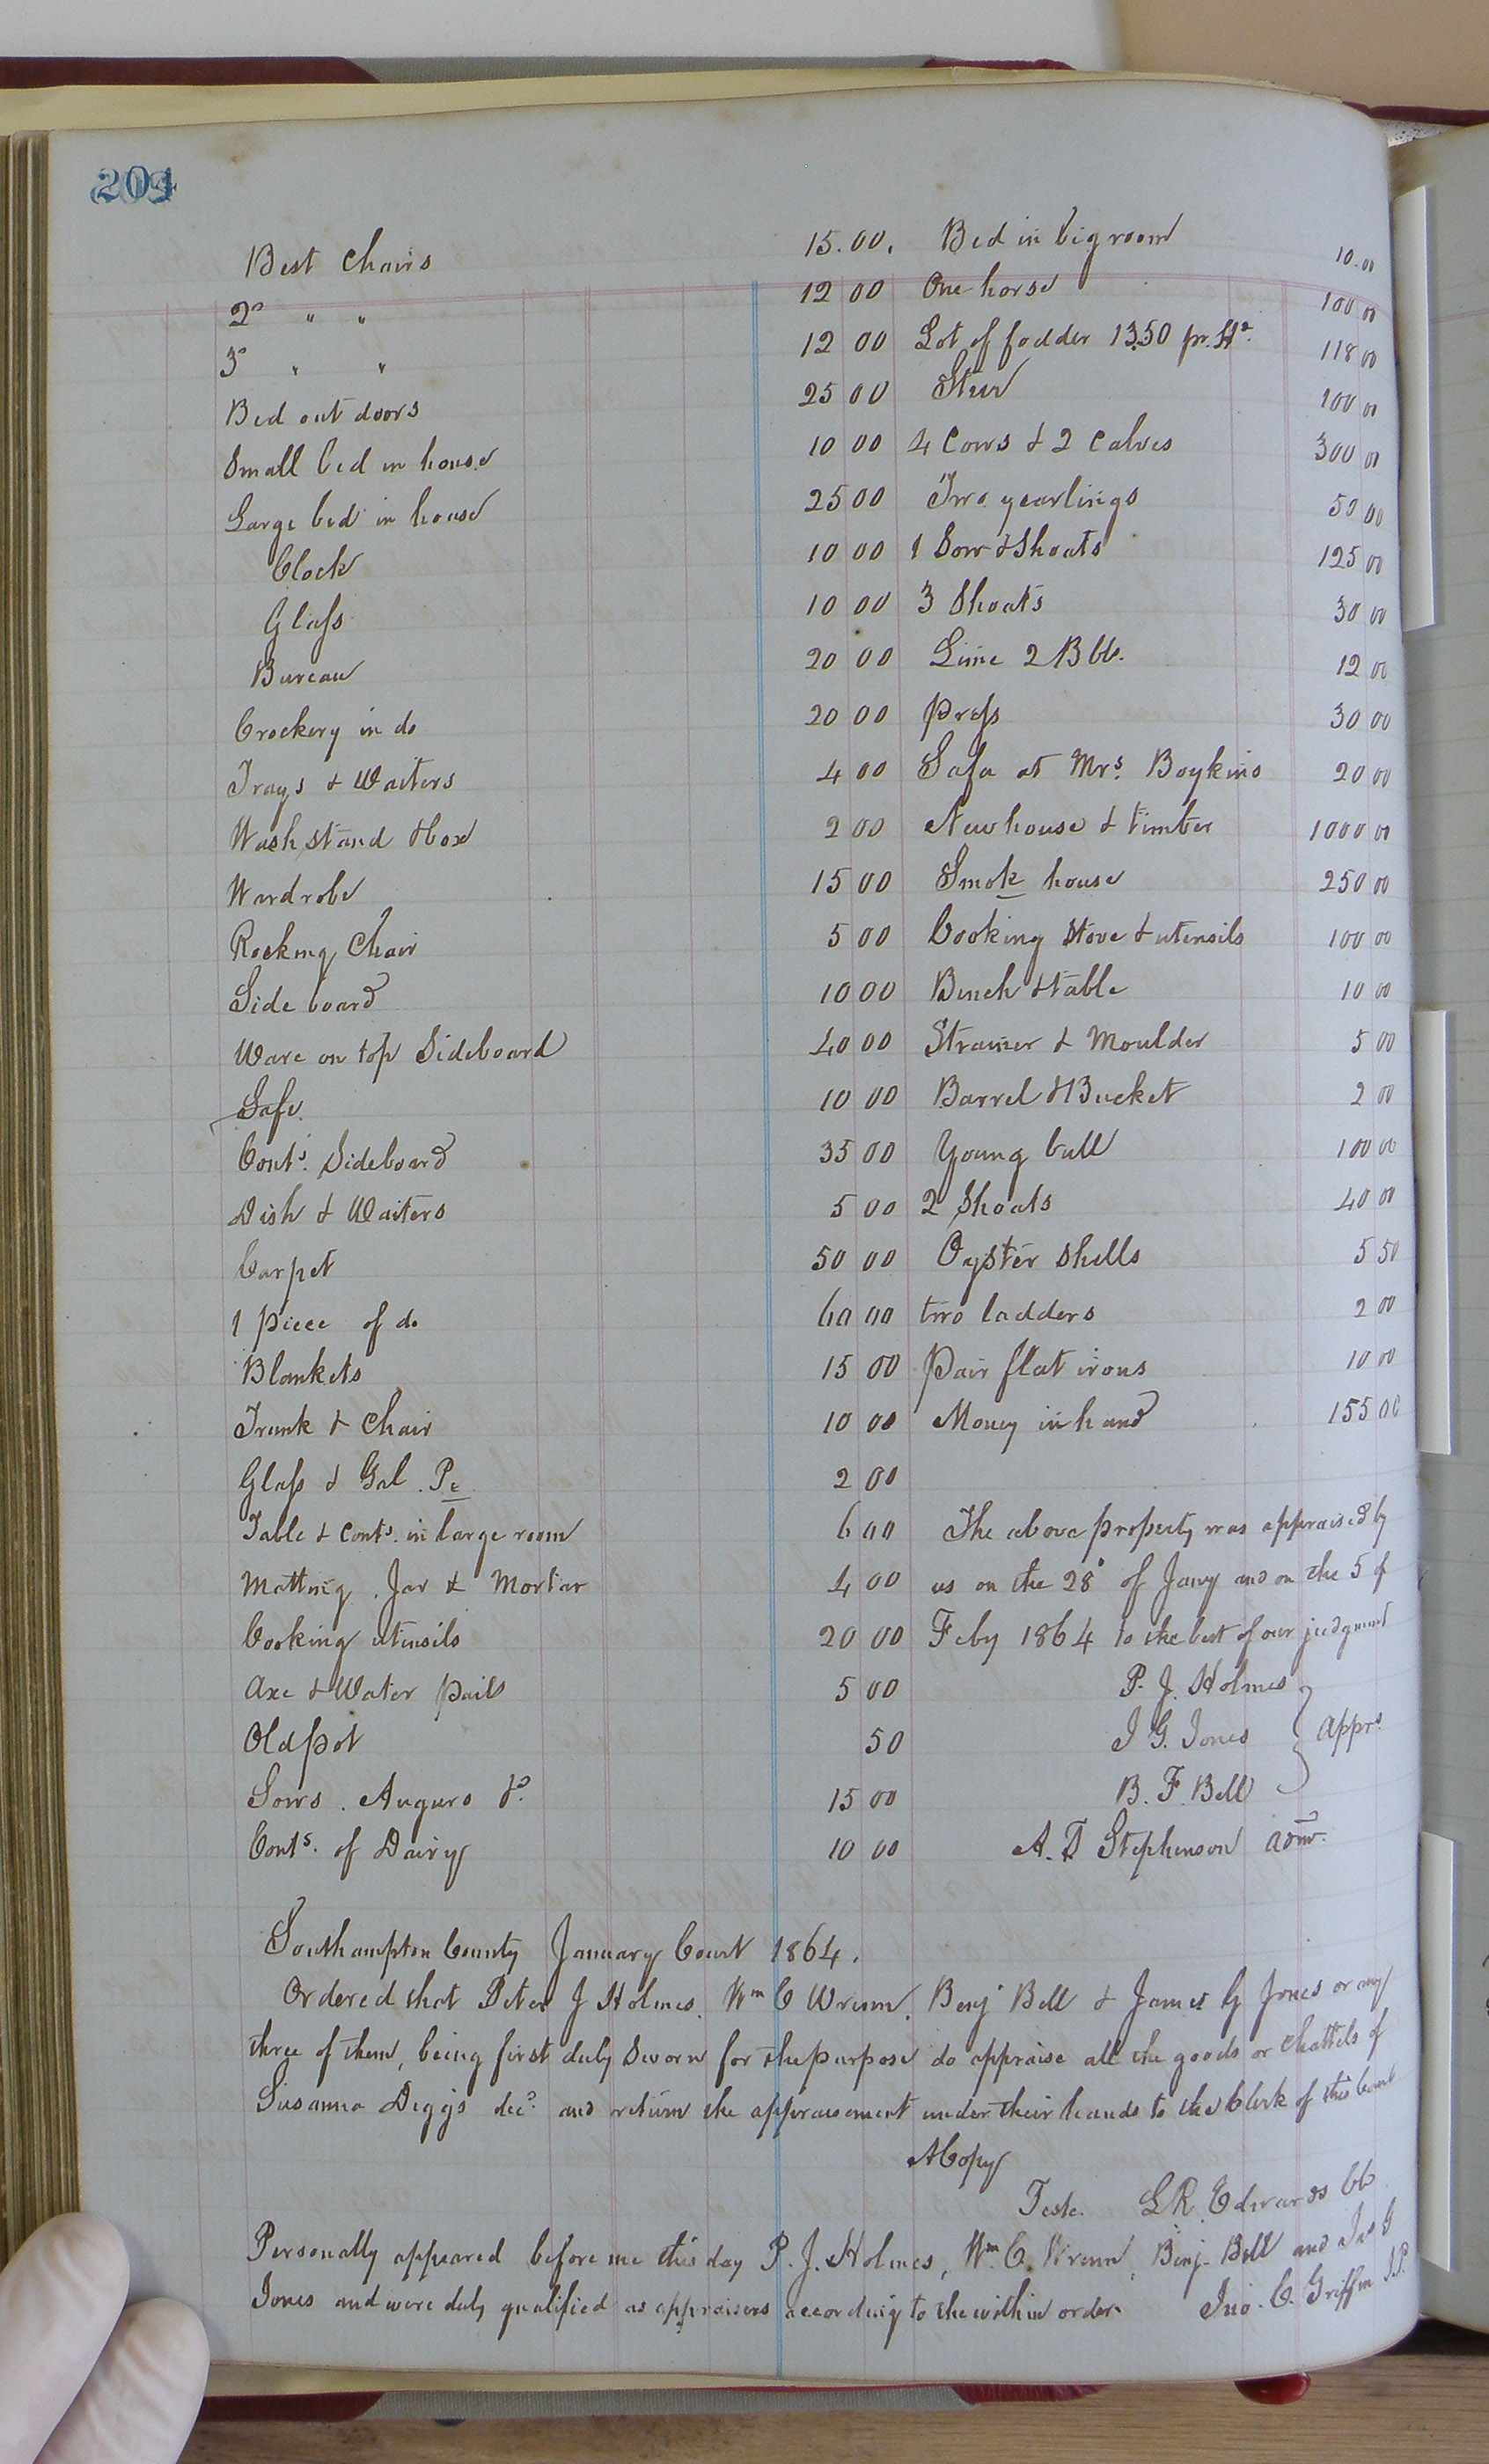 204
Best Chairs 15.00. Bed in big room 10.00
2° " " 12 00 One horse 100 00
3° " " 12 00 Lot of fodder 13.50 pr. 118 00
Bed out doors 25 00 Steer 100 00
Small bed in house 10 00 4 Cows & 2 Calves 300 00
Large bed in house 25 00 Two yearlings 50 00
Clock 10 00 1 Sow & Shoats 125 00
Glass 10 00 3 Shoats 30 00
Bureau 20 00 Lime 2 Bbls. 12 00
Crockery in do 20 00 Press 30 00
Trays & Waiters 4 00 Safe at Mrs. Boykins 20 00
Wash stand & box 2 00 New house & timber 1000 00
Wardrobe 15 00 Smok house 250 00
Rocking Chair 5 00 Cooking Stove & utensils 100 00
Side board 10 00 Bench & table 10 00
Ware on top Sideboard 40 00 Strainer & Moulder 5 00
Safe. 10 00 Barrel & Bucket 2 00
Conts. Sideboard 35 00 Young bull 100 00
Dish & Waiters 5 00 2 Shoats 40 00
Carpet 50 00 Oyster Shells 5 50
1 piece of do 60 00 two ladders 2 00
Blankets 15 00 Pair flat irons 10 00
Trunk & Chair 10 00 Money in hand 155 00
Glass & Gal. Pc 2 00
Table & Conts. in large room 6 00 The above property was appraised by
Matting, Jar & Mortar 4 00 us on the 28° of Jany and on the 5 of
Cooking utensils 20 00 Feby 1864 to the best of our judgment
Axe & Water pails 5 00 P. J. Holmes
Old pot 50 J G. Jones Apprs.
Saws. Augurs &c. 15 00 B. F. Bell
Conts. of Dairy 10 00 A. T Stephenson admr.
Southampton County January Court 1864.
Ordered that Peter J Holmes. Wm C Wrenn, Benj Bell & James G Jones or any
three of them, being first duly sworn for the purpose do appraise all the goods or Chattels of
Susanna Diggs decd. and return the appraisement under their hands to the Clerk of this Court
A Copy
Teste. L R. Edwards CC
Personally appeared before me this day P. J. Holmes, Wm. C. Wrenn, Benj. Bell and Jas G
Jones and were duly qualified as appraisers according to the within order. Jno. C. Griffin J.P.